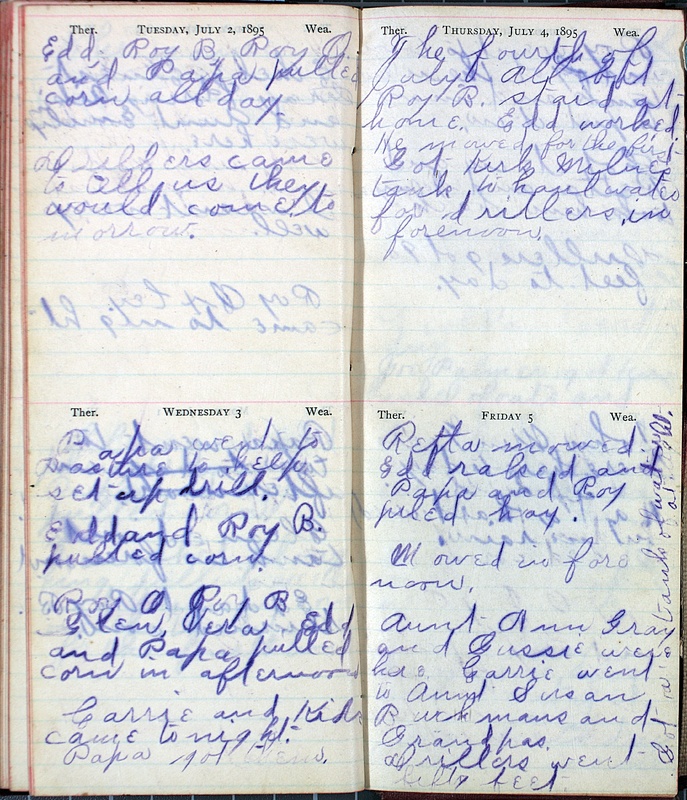 Ther. TUESDAY, JULY 2, 1895 Wea.
Edd. Roy B. Roy
and Papa pulled
corn all day
Drillers came
to tell us they
would come to
morrow.
Ther. WEDNESDAY 3 Wea.
Papa went to
pasture to help
set up drill.
Edd and Roy B.
pulled corn.
Roy A Roy B
Glen, Vera Edd
and Papa pulled
corn in afternoon
Carrie and Kids
came to night.
Papa got them.
Ther. THURSDAY, JULY 4, 1895 Wea.
The fourth of
July. All but
Roy B. staid at
home. Edd worked.
He mowed for the first
Got Kirk
tank to haul water
for drillers, in
forenoon.
Ther. FRIDAY 5 Wea.
Retta mowed
Edd raked and
Papa and Roy
piled hay.
Mowed in fore
noon.
Aunt Ann Gray
and Gussie were
here. Carrie went
to Aunt Susan
Buckmans and
Grandpas.
Drillers went
fifty feet.
Got two tanks of water